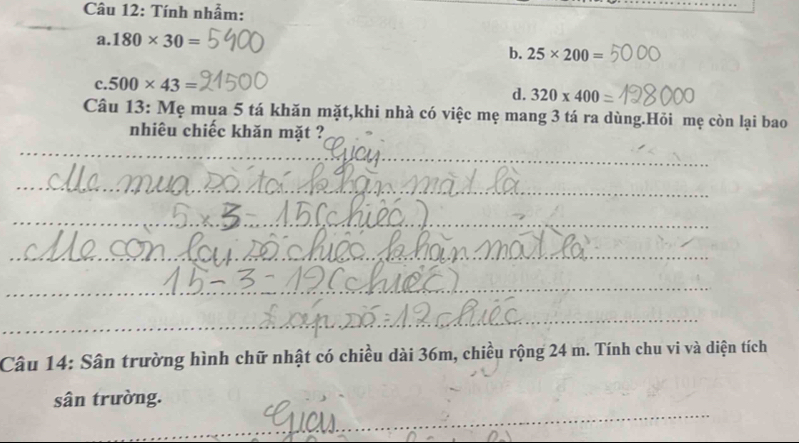 Câu 12: Tính nhẩm:
a.180 × 30 = 5400
b. 25 × 200 = 5000
c.500 × 43 = 21500
d. 320 x 400 = 128000
Câu 13: Mẹ mua 5 tá khăn mặt,khi nhà có việc mẹ mang 3 tá ra dùng.Hỏi mẹ còn lại bao
nhiêu chiếc khăn mặt ?
Giải
Mẹ mua số tá khăn mặt là
5 x 3 = 15 (chiếc)
Mẹ còn lại số chiếc khăn mặt là
15 - 3 = 12 (chiếc)
số = 12 chiếc
Câu 14: Sân trường hình chữ nhật có chiều dài 36m, chiều rộng 24 m. Tính chu vi và diện tích
sân trường.
Giải